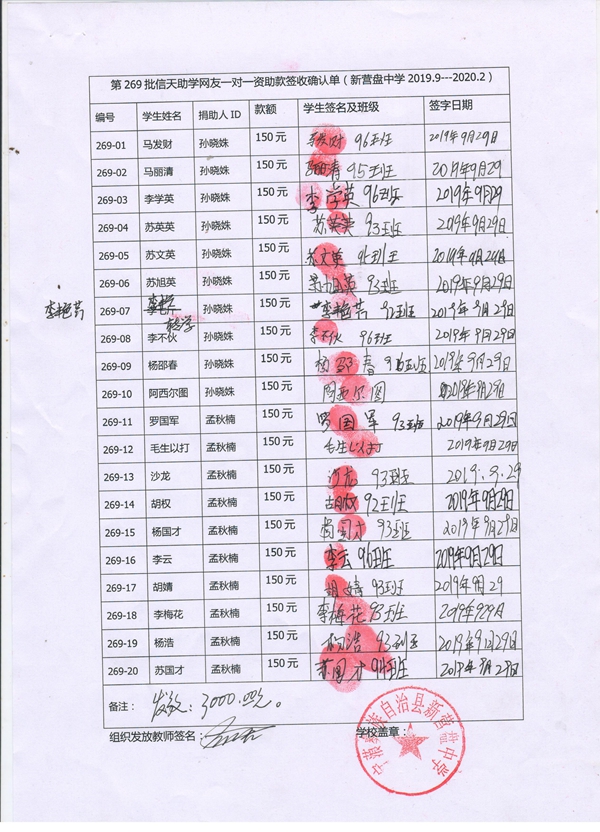 第 269 批信天助学网友一对一资助款签收确认单（新营盘中学 2019.9---2020.2）
编号 学生姓名 捐助人 ID 款额 学生签名及班级 签字日期
269-01 马发财 孙晓姝 150 元 马发财 96班 2019年9月29日
269-02 马丽清 孙晓姝 150 元 95班 2019年9月29
269-03 李学英 孙晓姝 150 元 李学英 96班 2019年9月29
269-04 苏英英 孙晓姝 150 元 苏英英 93班 2019年9月29日
269-05 苏文英 孙晓姝 150 元 苏文英 96班 2019年9月29日
269-06 苏旭英 孙晓姝 150 元 苏旭英 93班 2019年9月29日
李艳芸 269-07 孙晓姝 150 元 李艳芸 92班 2019年9月29日
转学
269-08 李不伙 孙晓姝 150 元 李不伙 96班 2019年9月29日
269-09 杨邵春 孙晓姝 150 元 杨邵春 96班 2019年9月29日
269-10 阿西尔图 孙晓姝 150 元 阿西尔图 2019年9月29日
269-11 罗国军 孟秋楠 150 元 罗国军 93班 2019年9月29日
269-12 毛生以打 孟秋楠 150 元 毛生以打 2019年9月29日
269-13 沙龙 孟秋楠 150 元 沙龙 93班 2019.9.29
269-14 胡权 孟秋楠 150 元 胡权 92班 2019年9月29日
269-15 杨国才 孟秋楠 150 元 杨国才 93班 2019年9月29日
269-16 李云 孟秋楠 150 元 李云 96班 2019年9月29日
269-17 胡婧 孟秋楠 150 元 胡婧 93班 2019年9月29
269-18 李梅花 孟秋楠 150 元 李梅花 93班 2019年929月
269-19 杨浩 孟秋楠 150 元 杨浩 92班 2019年9月29日
269-20 苏国才 孟秋楠 150 元 苏国才 94班 2019年9月29日
备注： 发放：3000.00元。
组织发放教师签名： 学校盖章：
宁蒗彝族自治县新营盘中学